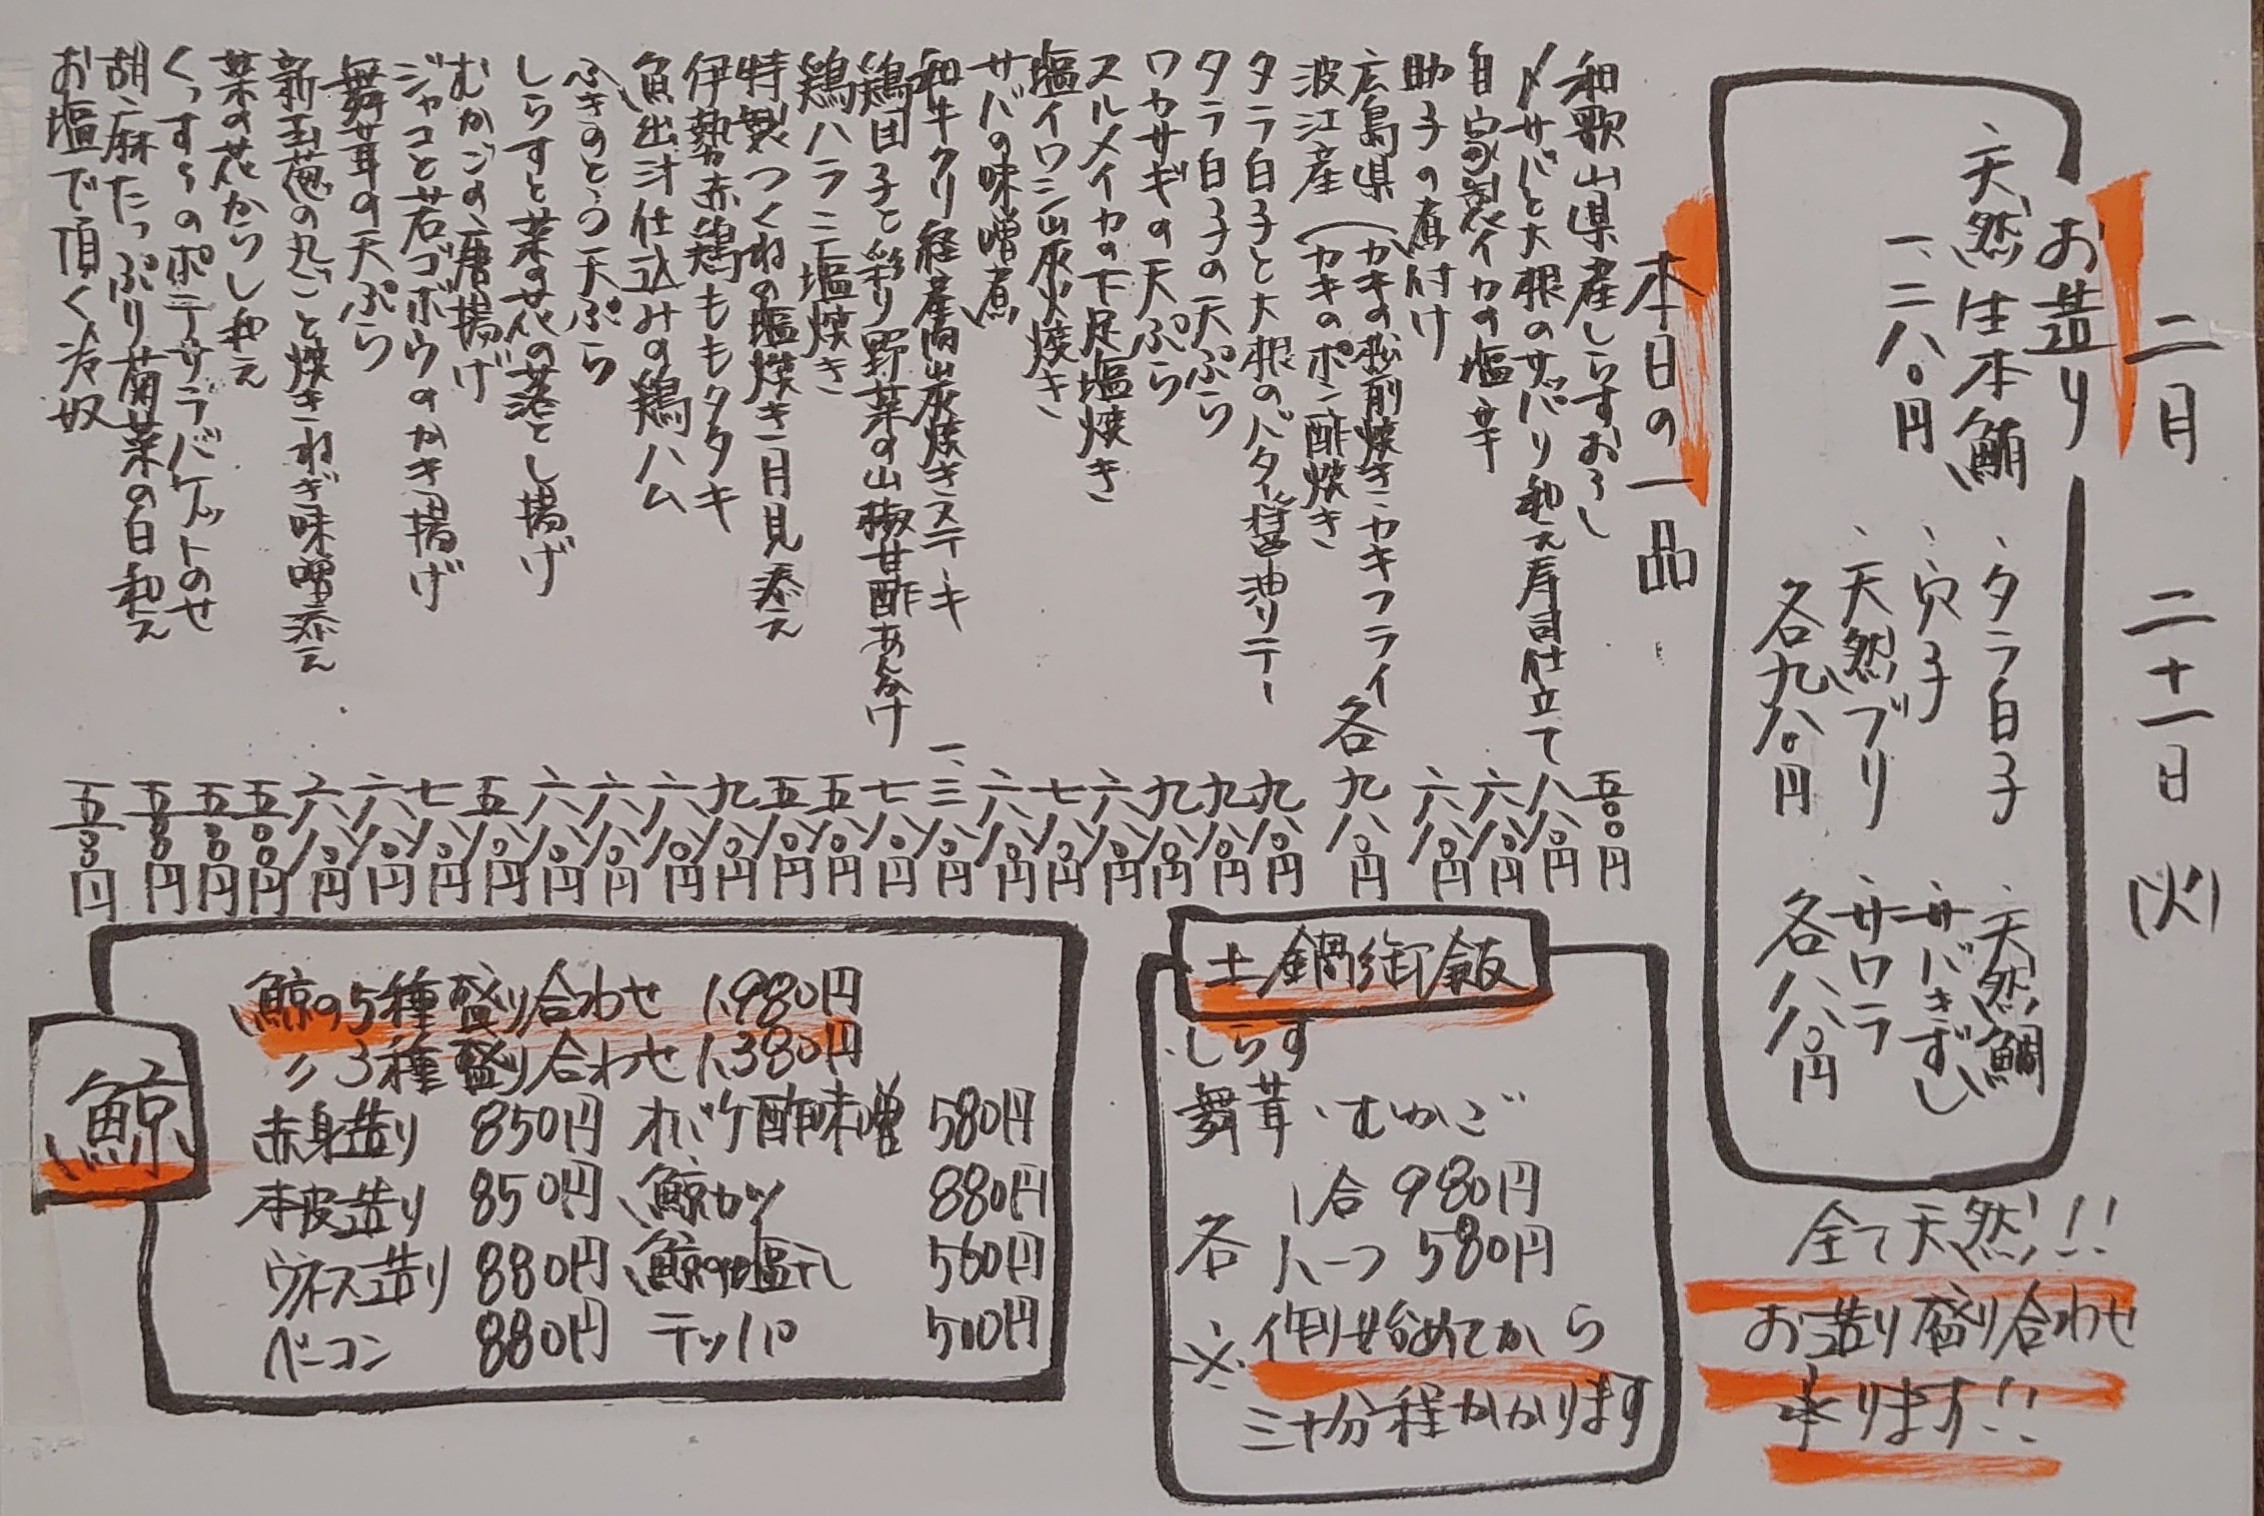 二月 二十一日 (火)
お造り
、天然生本鮪
一、二八〇円
、タラ白子
、穴子
、天然ブリ
各九八〇円
、天然鯛
、サバきずし
、サワラ
各八八〇円
全て天然!!
お造り盛り合わせ
承ります!!
本日の一品
和歌山県産しらすおろし 五〇〇円
〆サバと大根のサッパリ和え寿司仕立て 八八〇円
自家製イカの塩辛 六八〇円
助子の煮付け 六八〇円
広島県(カキの松前焼き・カキフライ
波江産(カキのポン酢焼き 各九八〇円
タラ白子と大根のバター醤油ソテー 九八〇円
タラ白子の天ぷら 九八〇円
ワカサギの天ぷら 九八〇円
スルメイカの下足塩焼き 六八〇円
塩イワシ炭火焼き 七八〇円
サバの味噌煮 六八〇円
和牛クリ経産肉炭焼きステーキ 一、三八〇円
鶏団子と彩り野菜の山椒甘酢あんかけ 七八〇円
鶏ハラミ塩焼き 五八〇円
特製つくねの塩焼き 月見添え 五八〇円
伊勢赤鶏ももタタキ 九八〇円
魚出汁仕込みの鶏ハム 六八〇円
ふきのとう天ぷら 六八〇円
しらすと菜の花の落とし揚げ 六八〇円
むかごの唐揚げ 五八〇円
ジャコと若ゴボウのかき揚げ 七八〇円
舞茸の天ぷら 六八〇円
新玉葱の丸ごと焼き ねぎ味噌添え 六八〇円
菜の花からし和え 五〇〇円
くっすぅのポテサラバケットのせ 五〇〇円
胡麻たっぷり菊菜の白和え 五〇〇円
お塩で頂く冷奴 五〇〇円
土鍋御飯
・しらす
舞茸・むかご
各 1合 980円
ハーフ 580円
※作り始めてから
三十分程かかります
鯨
鯨の5種盛り合わせ 1,980円
〃3種盛り合わせ 1,380円
赤身造り 850円 オバケ酢味噌 580円
本皮造り 850円 鯨カツ 880円
ウネス造り 880円 鯨の塩干し 560円
ベーコン 880円 テッパ 500円